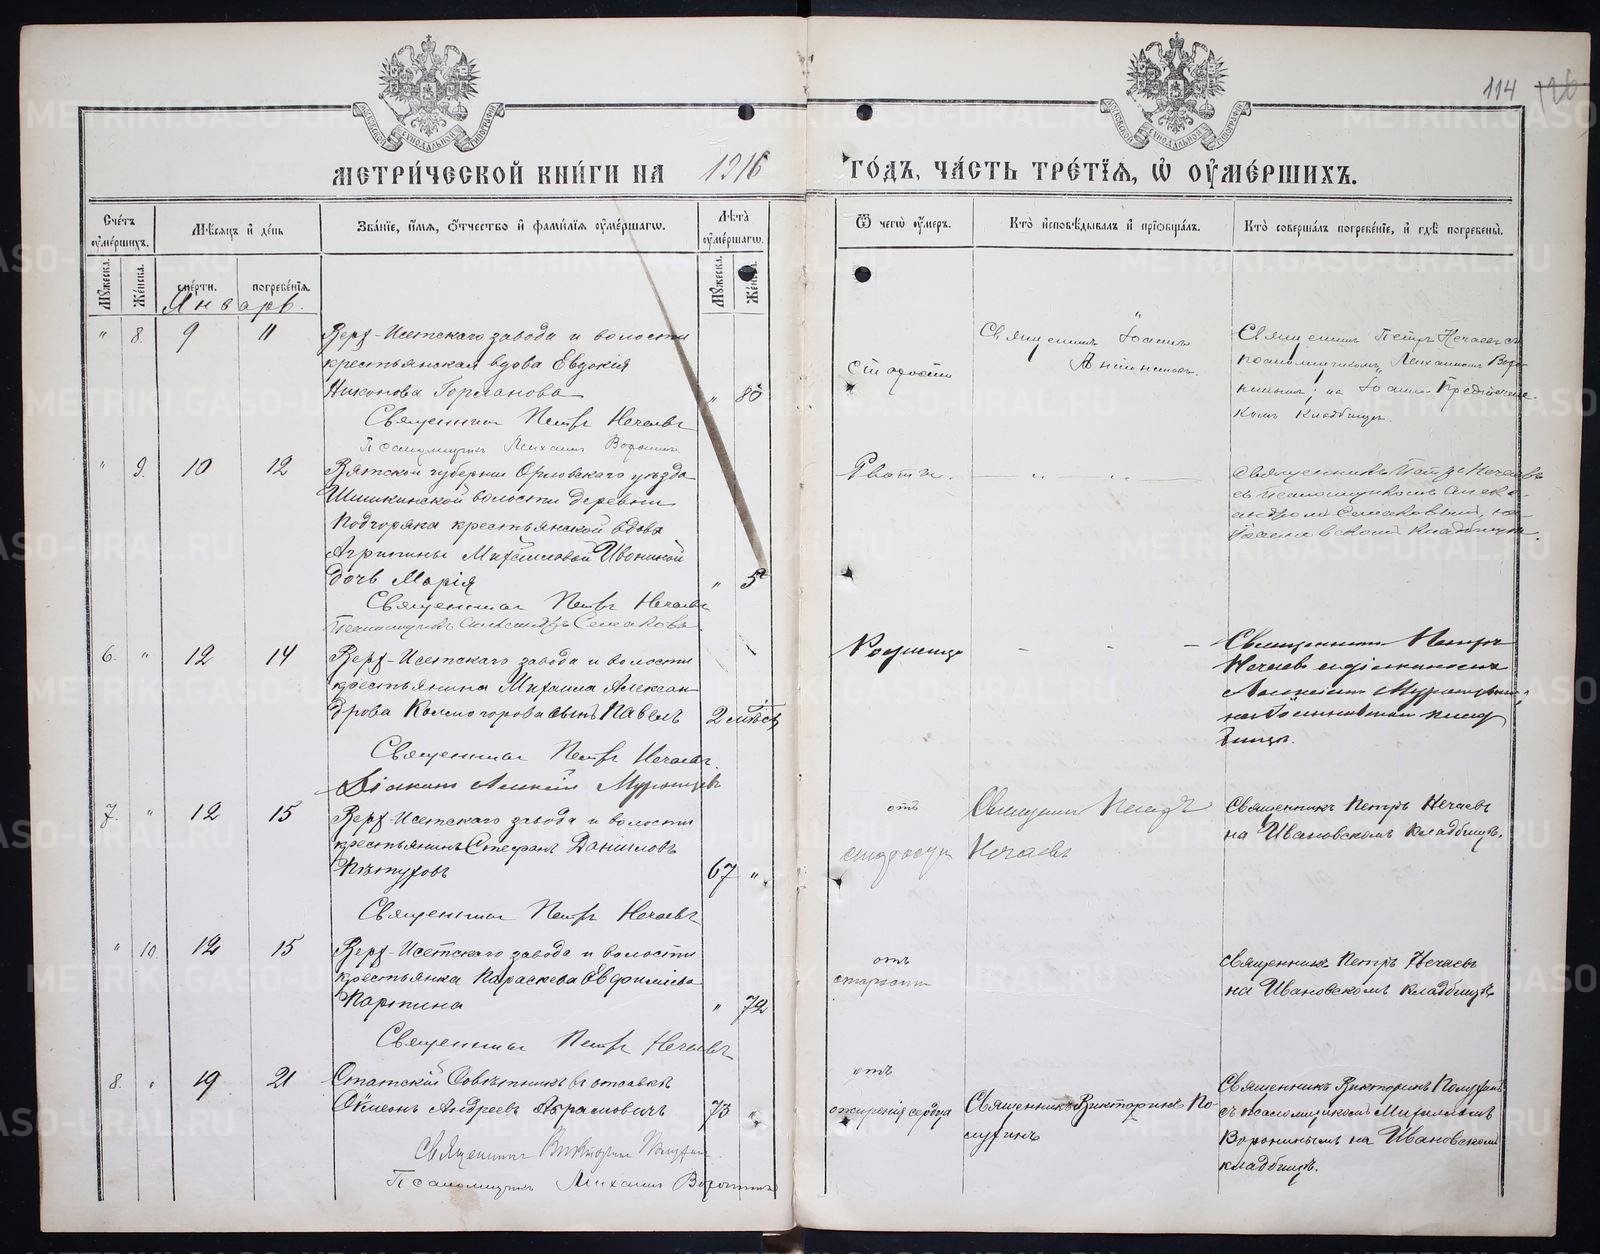 114
МЕТРИ́ЧЕСКОЙ КНИ́ГИ НА 1916 ГО́ДЪ, ЧА́СТЬ ТРЕ́ТІѦ, Ѡ ОУМЕ́РШИХЪ.
Сче́тъ оуме́ршихъ.
Мѣ́сяцъ и де́нь
Зва́нїе, и́мѧ, о́тчество и фами́лїѧ оуме́ршагѡ.
Лѣ́та оуме́ршагѡ.
Ѿ чегѡ̀ оу́меръ.
Кто̀ исповѣ́дывалъ и прїобща́лъ.
Кто̀ соверша́лъ погребе́нїе, и гдѣ̀ погребены̀.
Мꙋ́жеска.
Же́нска.
сме́рти.
погребе́нїѧ.
Мꙋ́жеска.
Же́нска.
Январь.
" 8. 9 11
Верх-Исетскаго завода и волости
крестьянская вдова Евдокія
Никонова Горланова " 80
Священникъ Петръ Нечаевъ
Псаломщикъ Михаилъ Воронинъ.
старости
Священникъ Іоаннъ
Священникъ Петръ Нечаевъ съ
псаломщикомъ Михаиломъ Воро-
нинымъ; на Іоанно-Предтечен-
скомъ кладбищѣ.
" 9. 10 12
Вятской губерніи Орловскаго уѣзда
Шишкинской волости деревни
Подгоряна крестьянской вдова
Агрипины Михайловой Ивониной
дочь Марія " 5
Священникъ Петръ Нечаевъ
Псаломщикъ Александръ Семаковъ
Рвоти.
Священникъ Петръ Нечаевъ
съ псаломщикомъ Алекс-
андромъ Семаковымъ, на
Іоанновскомъ кладбищѣ.
6. " 12 14
Верх-Исетскаго завода и волости
крестьянина Михаила Алексан-
дрова Колмогорова сынъ Павелъ 2 мѣсъ
Священникъ Петръ Нечаевъ.
Діаконъ Алексій
Родимца
Священникъ Петръ
Нечаевъ съ діакономъ
Алексіемъ
на Іоанновскомъ клад-
бищѣ.
7. " 12 15
Верх-Исетскаго завода и волости
крестьянинъ Стефанъ Даниловъ
Пѣтуховъ 67 "
Священникъ Петръ Нечаевъ
отъ
старости
Священникъ Петръ
Нечаевъ
Священникъ Петръ Нечаевъ
на Ивановскомъ кладбищѣ.
" 10. 12 15
Верх-Исетскаго завода и волости
крестьянка Параскева Евфиміева
Паршина " 72
Священникъ Петръ Нечаевъ
отъ
старости
Священникъ Петръ Нечаевъ
на Ивановскомъ кладбищѣ
8. " 19 21
Статскій Совѣтникъ въ отставкѣ
Сѵмеонъ Андреевъ Абрамовичъ 73 "
Священникъ Викторинъ Полухинъ.
Псаломщикъ Михаилъ Воронинъ
отъ
ожирѣнія сердца
Священникъ Викторинъ По-
лухинъ
Священникъ Викторинъ Полухинъ
съ псаломщикомъ Михаиломъ
Воронинымъ на Ивановскомъ
кладбищѣ.
METRIKI.GASO-URAL.RU